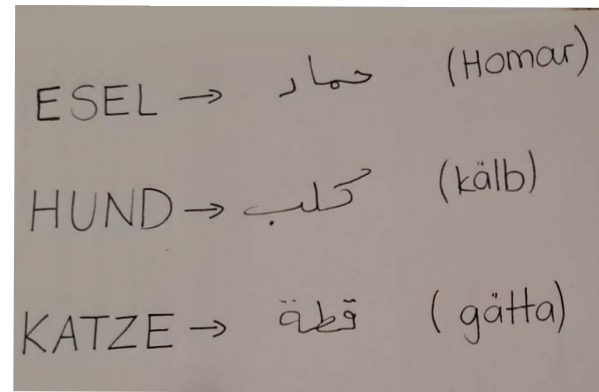 ESEL → حمار (Homar)
HUND → كلب (kälb)
KATZE → قطة (gätta)